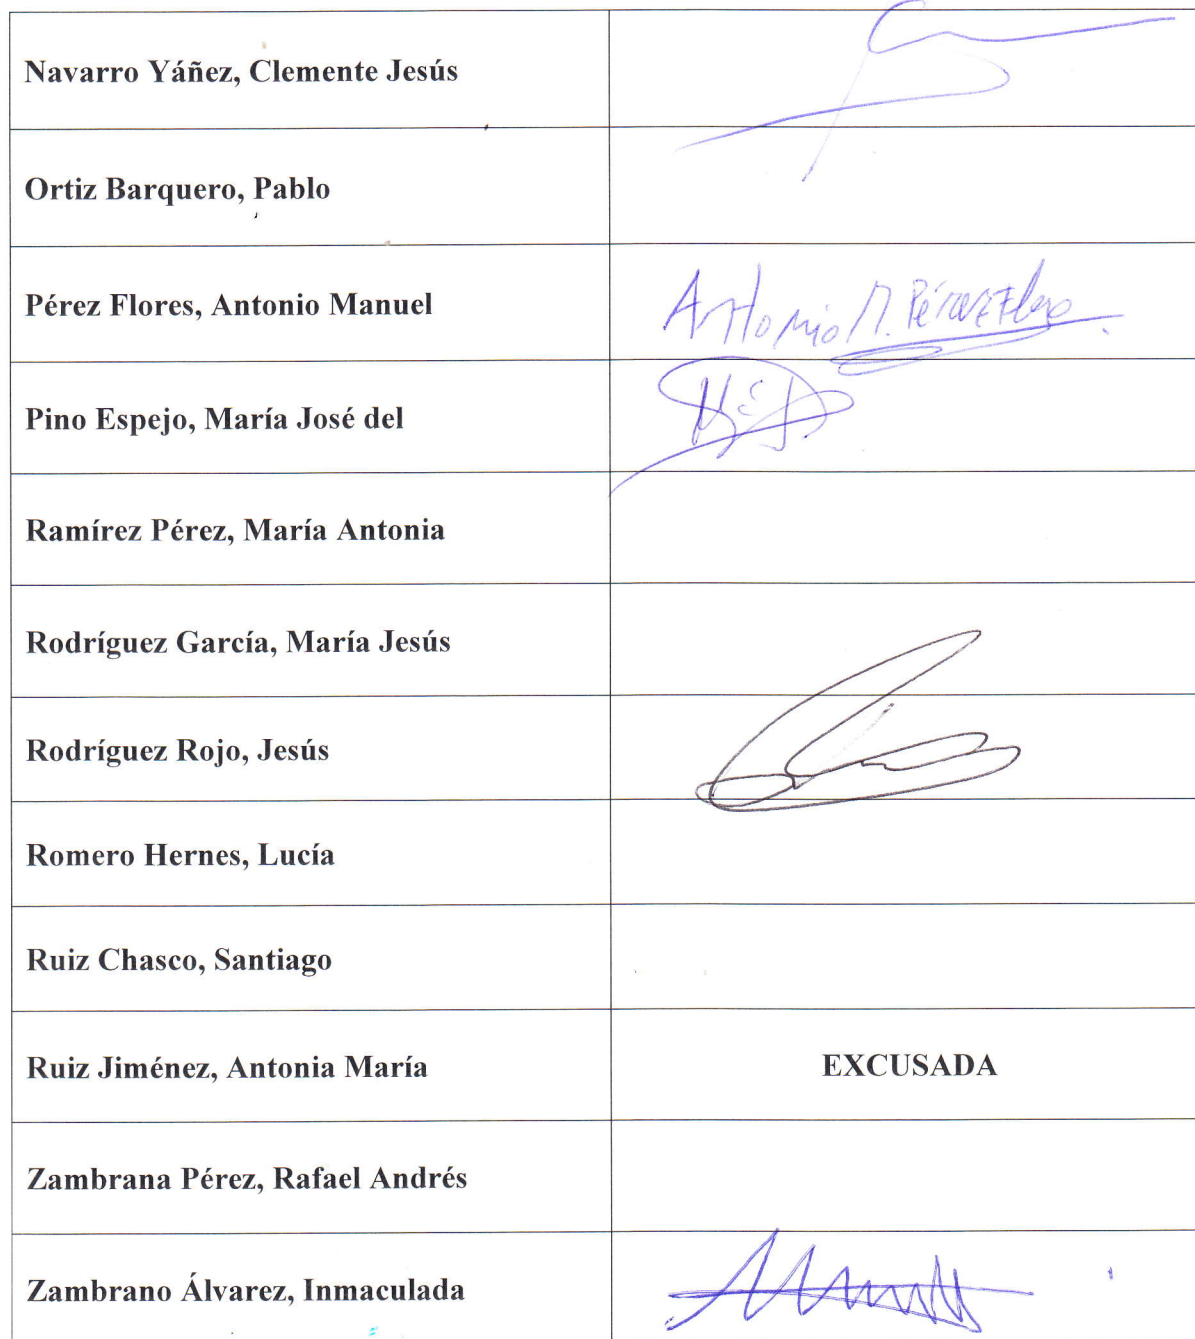 Navarro Yáñez, Clemente Jesús
Ortiz Barquero, Pablo
Pérez Flores, Antonio Manuel
Antonio M. Pérez Flores
Pino Espejo, María José del
Ramírez Pérez, María Antonia
Rodríguez García, María Jesús
Rodríguez Rojo, Jesús
Romero Hernes, Lucía
Ruiz Chasco, Santiago
Ruiz Jiménez, Antonia María
EXCUSADA
Zambrana Pérez, Rafael Andrés
Zambrano Álvarez, Inmaculada